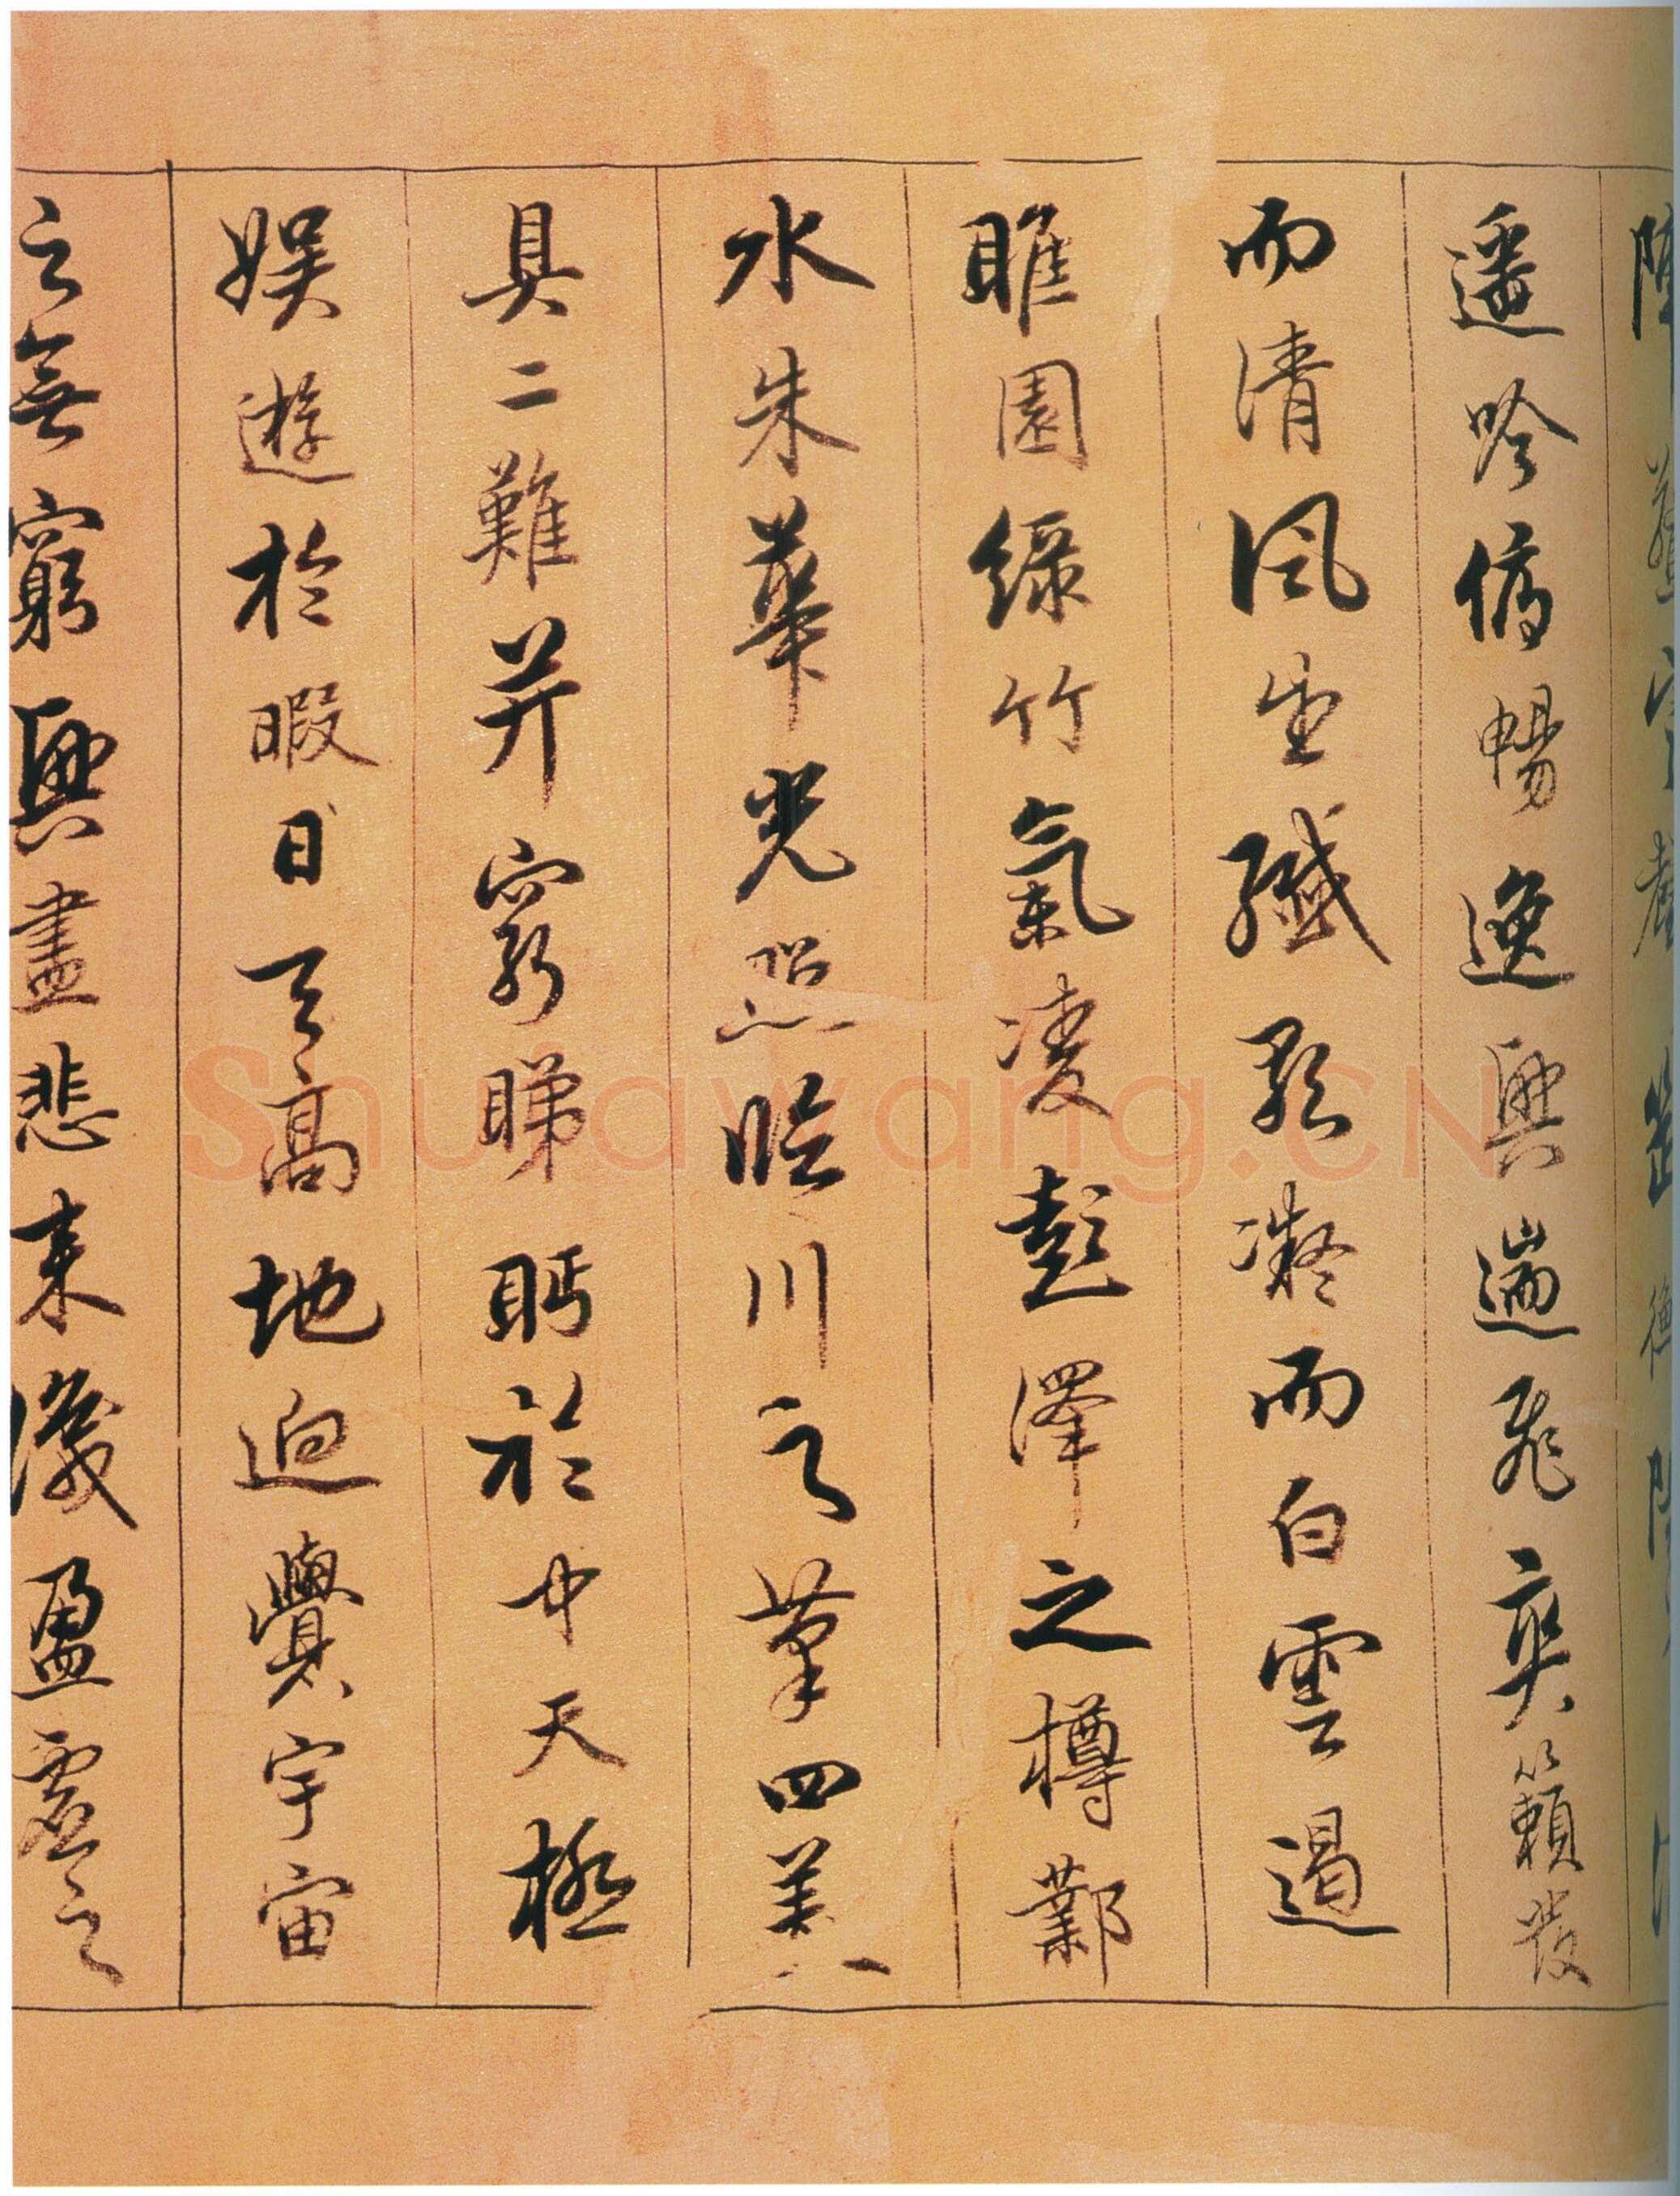 遙吟俯暢逸興遄飛爽籟發
而清風生纖歌凝而白雲遏
睢園綠竹氣凌彭澤之樽鄴
水朱華光照臨川之筆四美
具二難并窮睇眄於中天極
娛遊於暇日天高地迥覺宇宙
之無窮興盡悲來識盈虛之
Shufawang.CN